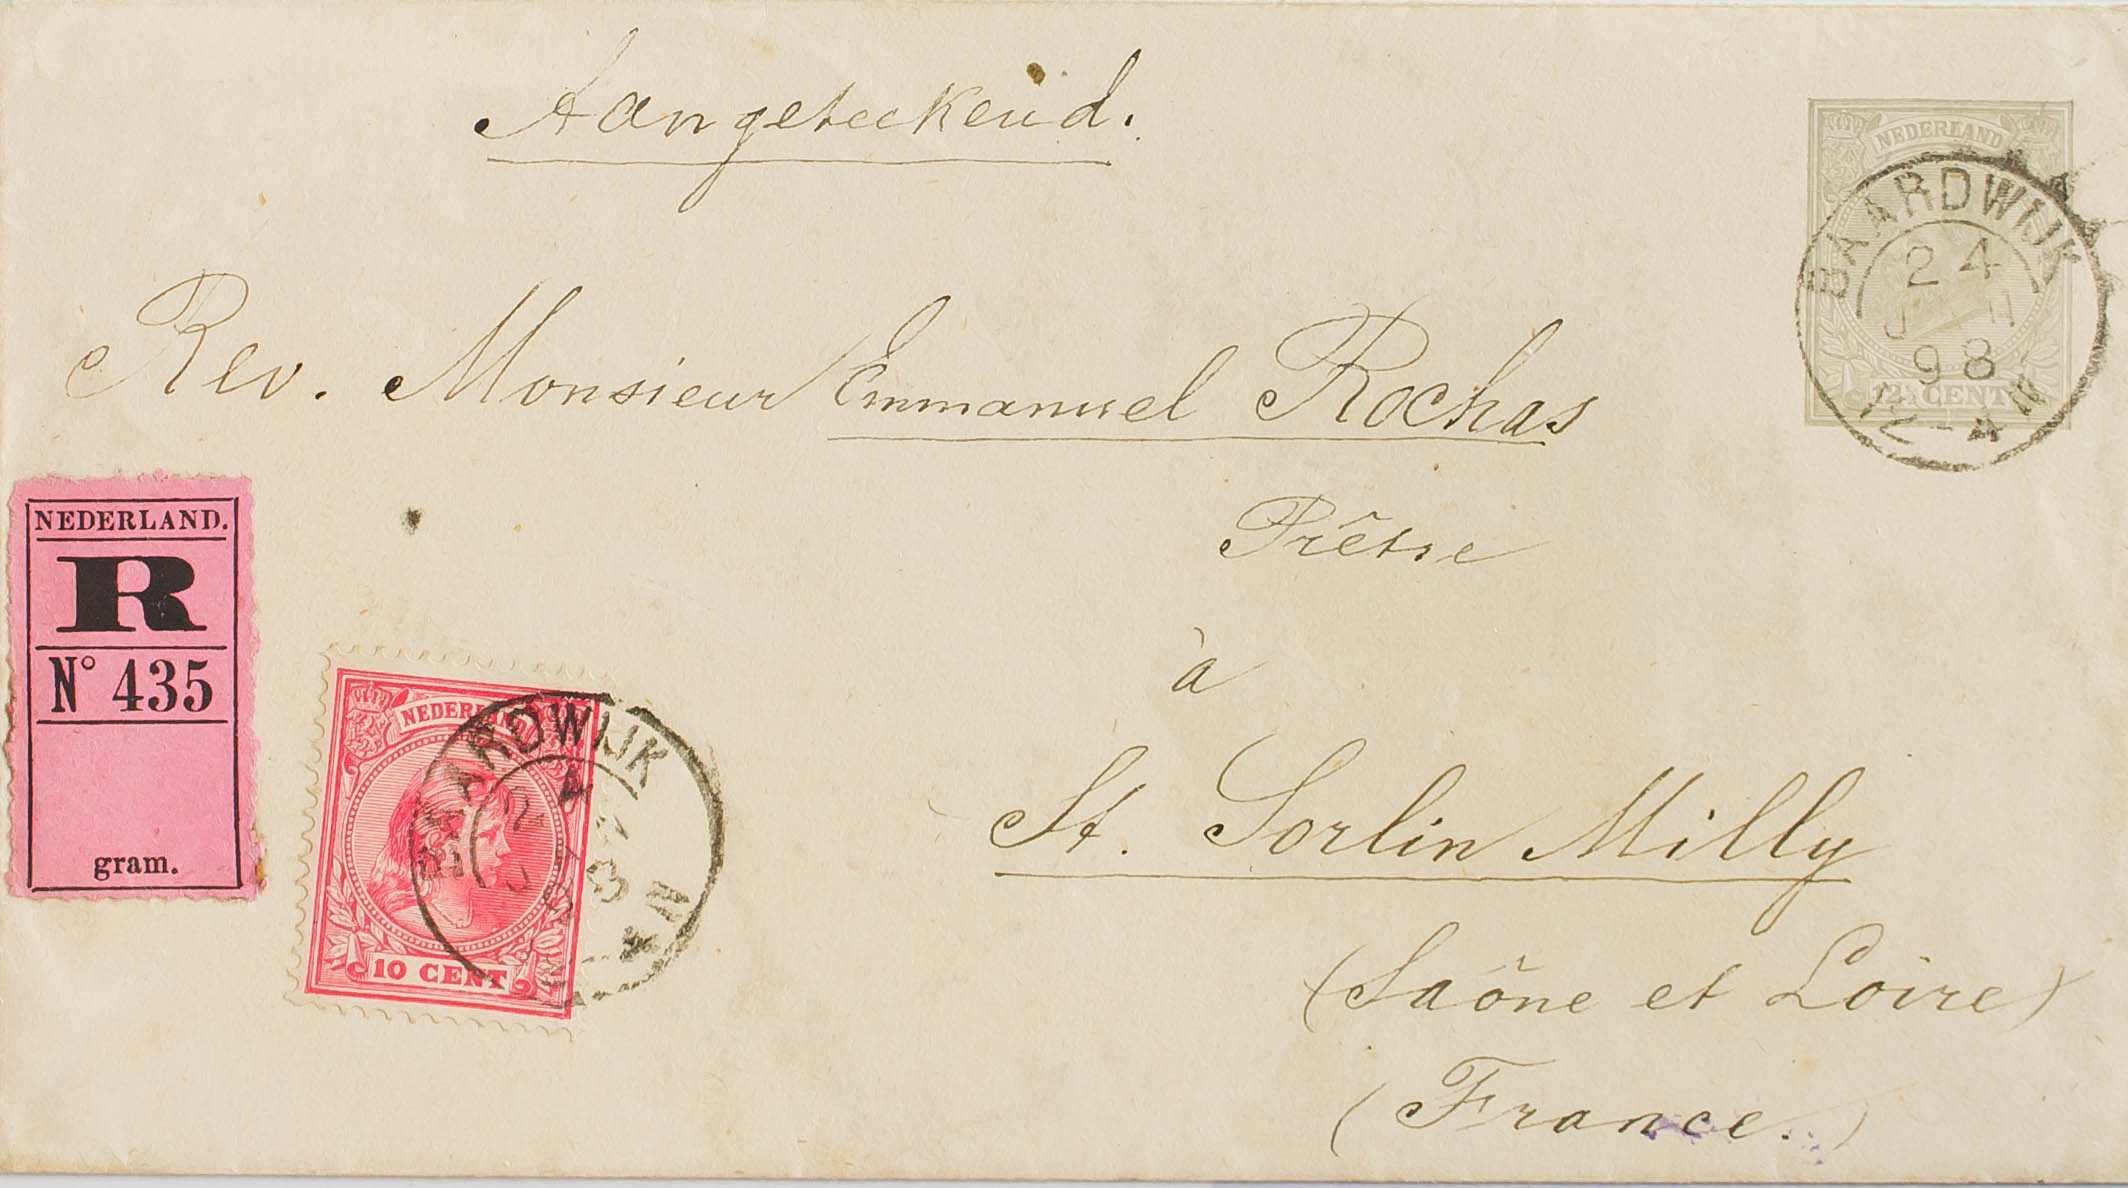 Aangeteekend.
NEDERLAND
BAARDWIJK
24
98
12-4N
12½ CENT
Rev. Monsieur Emmanuel Rochas
Prêtre
à
St. Sorlin Milly
(Saône et Loire)
(France.)
NEDERLAND.
R
N° 435
gram.
NEDERLAND
10 CENT
BAARDWIJK
24
98